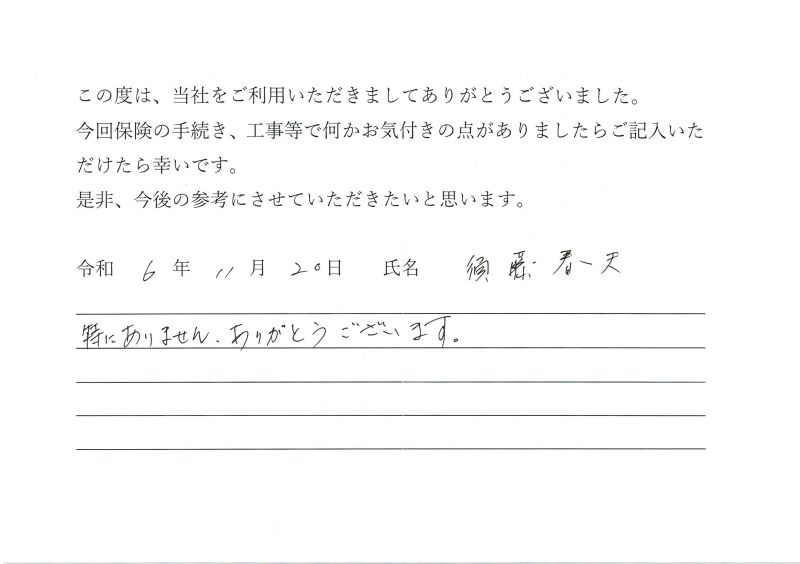 この度は、当社をご利用いただきましてありがとうございました。
今回保険の手続き、工事等で何かお気付きの点がありましたらご記入いた
だけたら幸いです。
是非、今後の参考にさせていただきたいと思います。
令和 6 年 11 月 20日 氏名 須藤
特にありません、ありがとうございます。